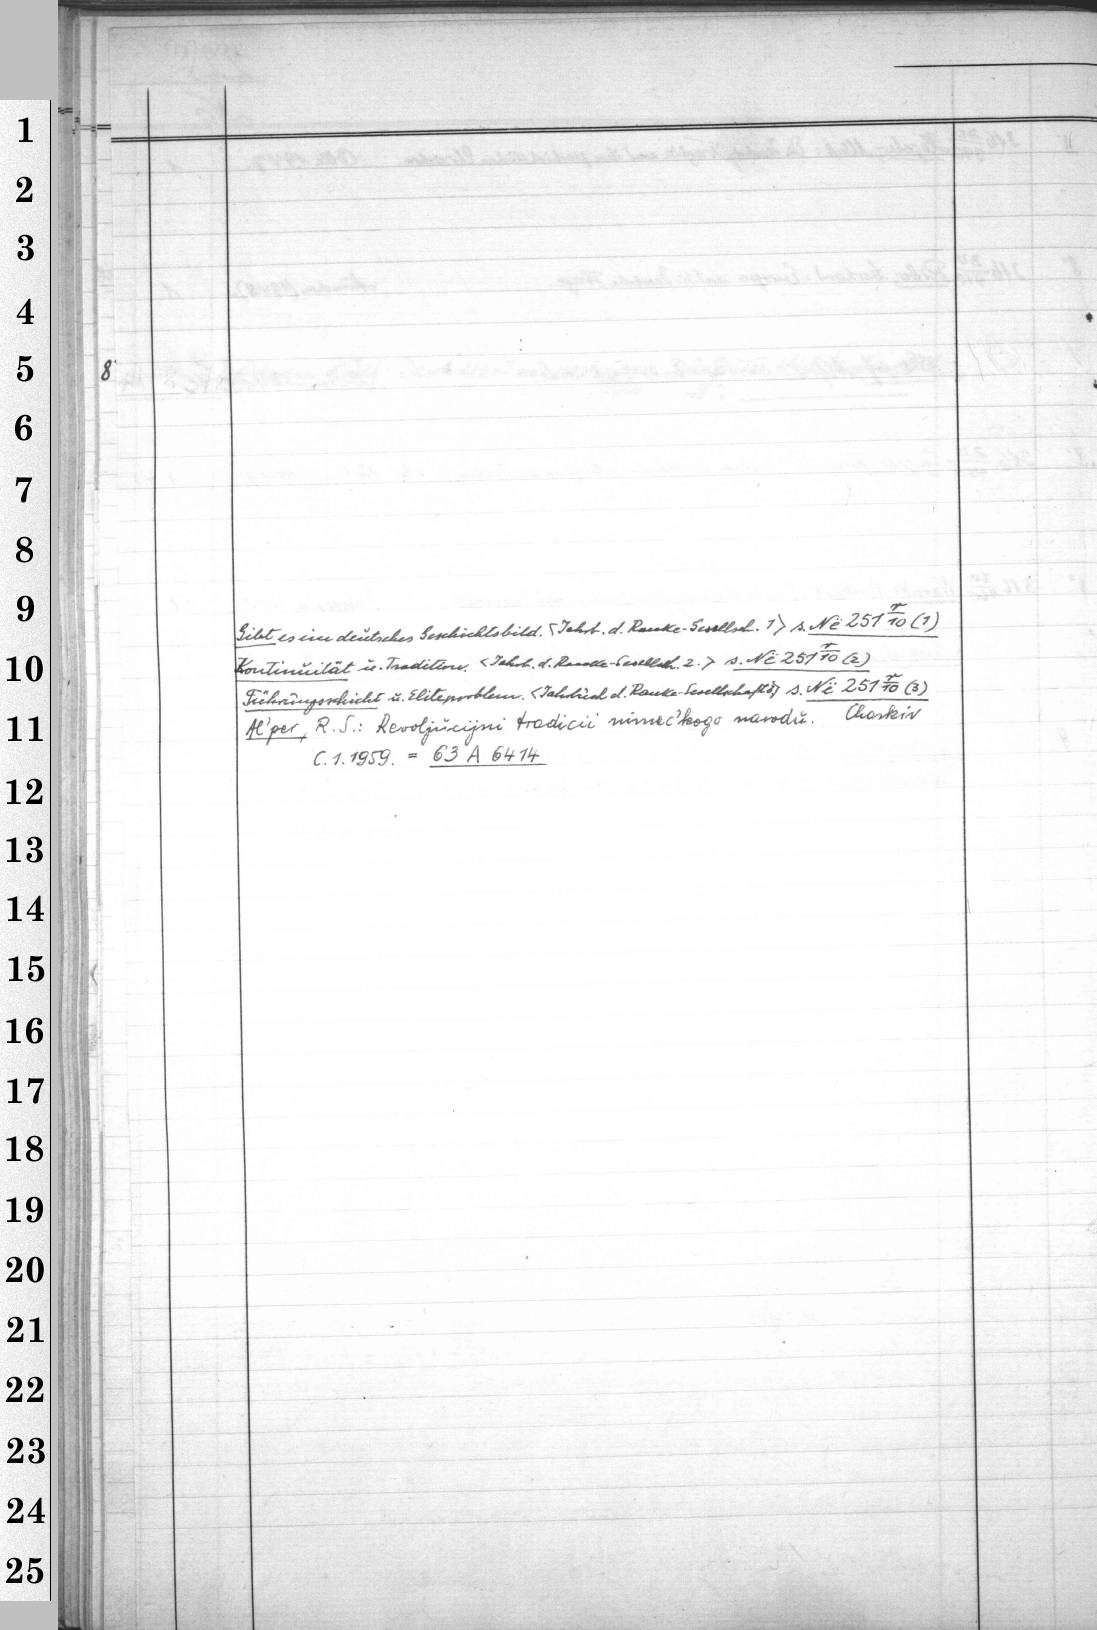 1
2
3
4
5
8°
6
7
8
9
Gibt es ein deutsches Geschichtsbild. <Jahrb. d. Ranke-Gesellsch. 1> s. Ne 251 r/10 (1)
10
Kontinuität u. Tradition. <Jahrb. d. Ranke-Gesellsch. 2.> s. Ne 251 r/10 (2)
Führungsschicht u. Eliteproblem. <Jahrbuch d. Ranke-Gesellschaft 3> s. Ne 251 r/10 (3)
11
Al'per, R. S.: Revoljucijni tradicii nimec'kogo narodu. Charkiv
C. 1. 1959. = 63 A 6414
12
13
14
15
16
17
18
19
20
21
22
23
24
25